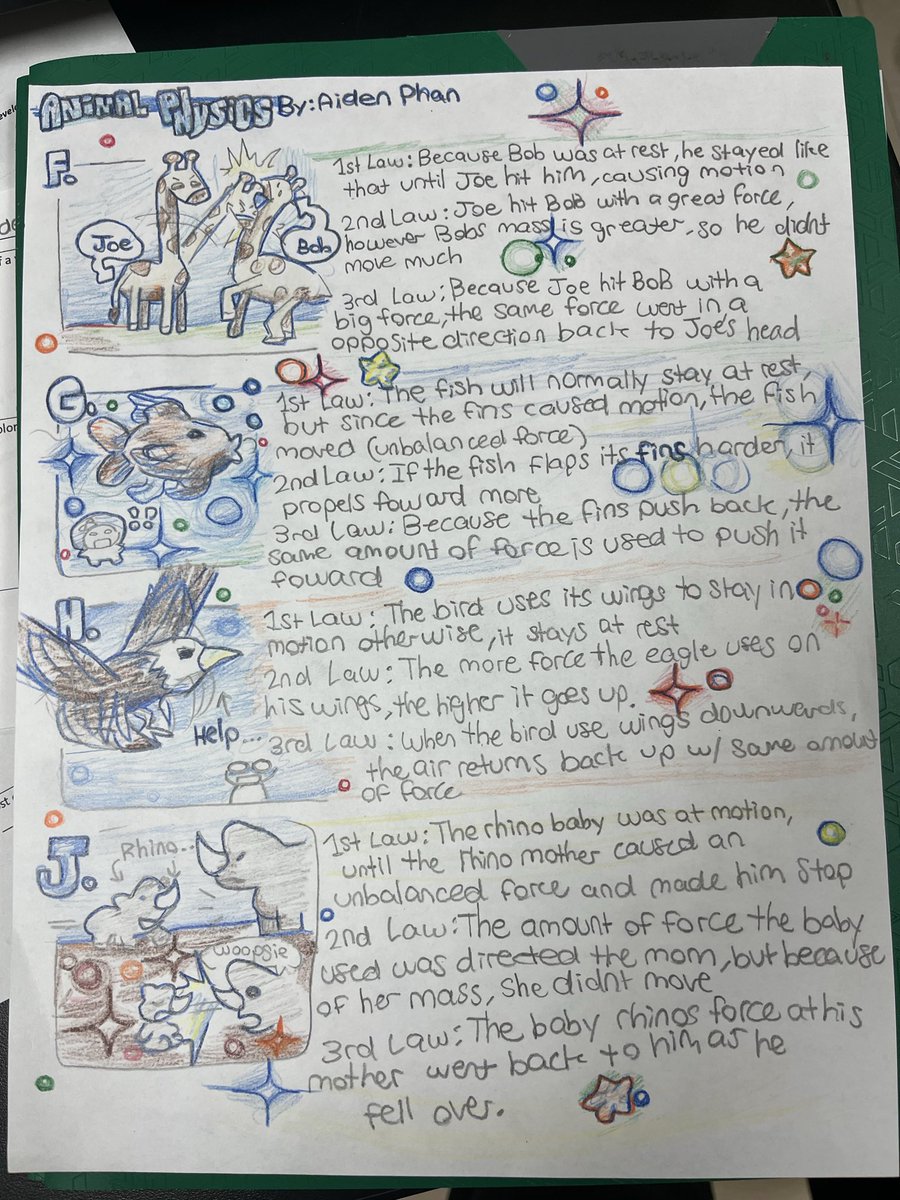 ANIMAL PHYSICS By: Aiden Phan
F.
Joe
Bob
1st Law: Because Bob was at rest, he stayed like
that until Joe hit him, causing motion
2nd Law: Joe hit Bob with a great force,
however Bobs mass is greater, so he didnt
move much
3rd Law: Because Joe hit BoB with a
big force, the same force went in a
opposite direction back to Joe's head
G.
1st Law: The fish will normally stay at rest,
but since the fins caused motion, the fish
moved (unbalanced force)
2nd Law: If the fish flaps its fins harder, it
propels foward more
3rd Law: Because the fins push back, the
same amount of force is used to push it
foward
H.
Help...
1st Law: The bird uses its wings to stay in
motion otherwise, it stays at rest
2nd Law: The more force the eagle uses on
his wings, the higher it goes up.
3rd Law: When the bird use wings downwards,
the air returns back up w/ same amount
of force
J.
Rhino..
woopsie
1st Law: The rhino baby was at motion,
untill the rhino mother caused an
unbalanced force and made him stop
2nd Law: The amount of force the baby
used was directed the mom, but because
of her mass, she didnt move
3rd Law: The baby rhinos force at his
mother went back to him as he
fell over.